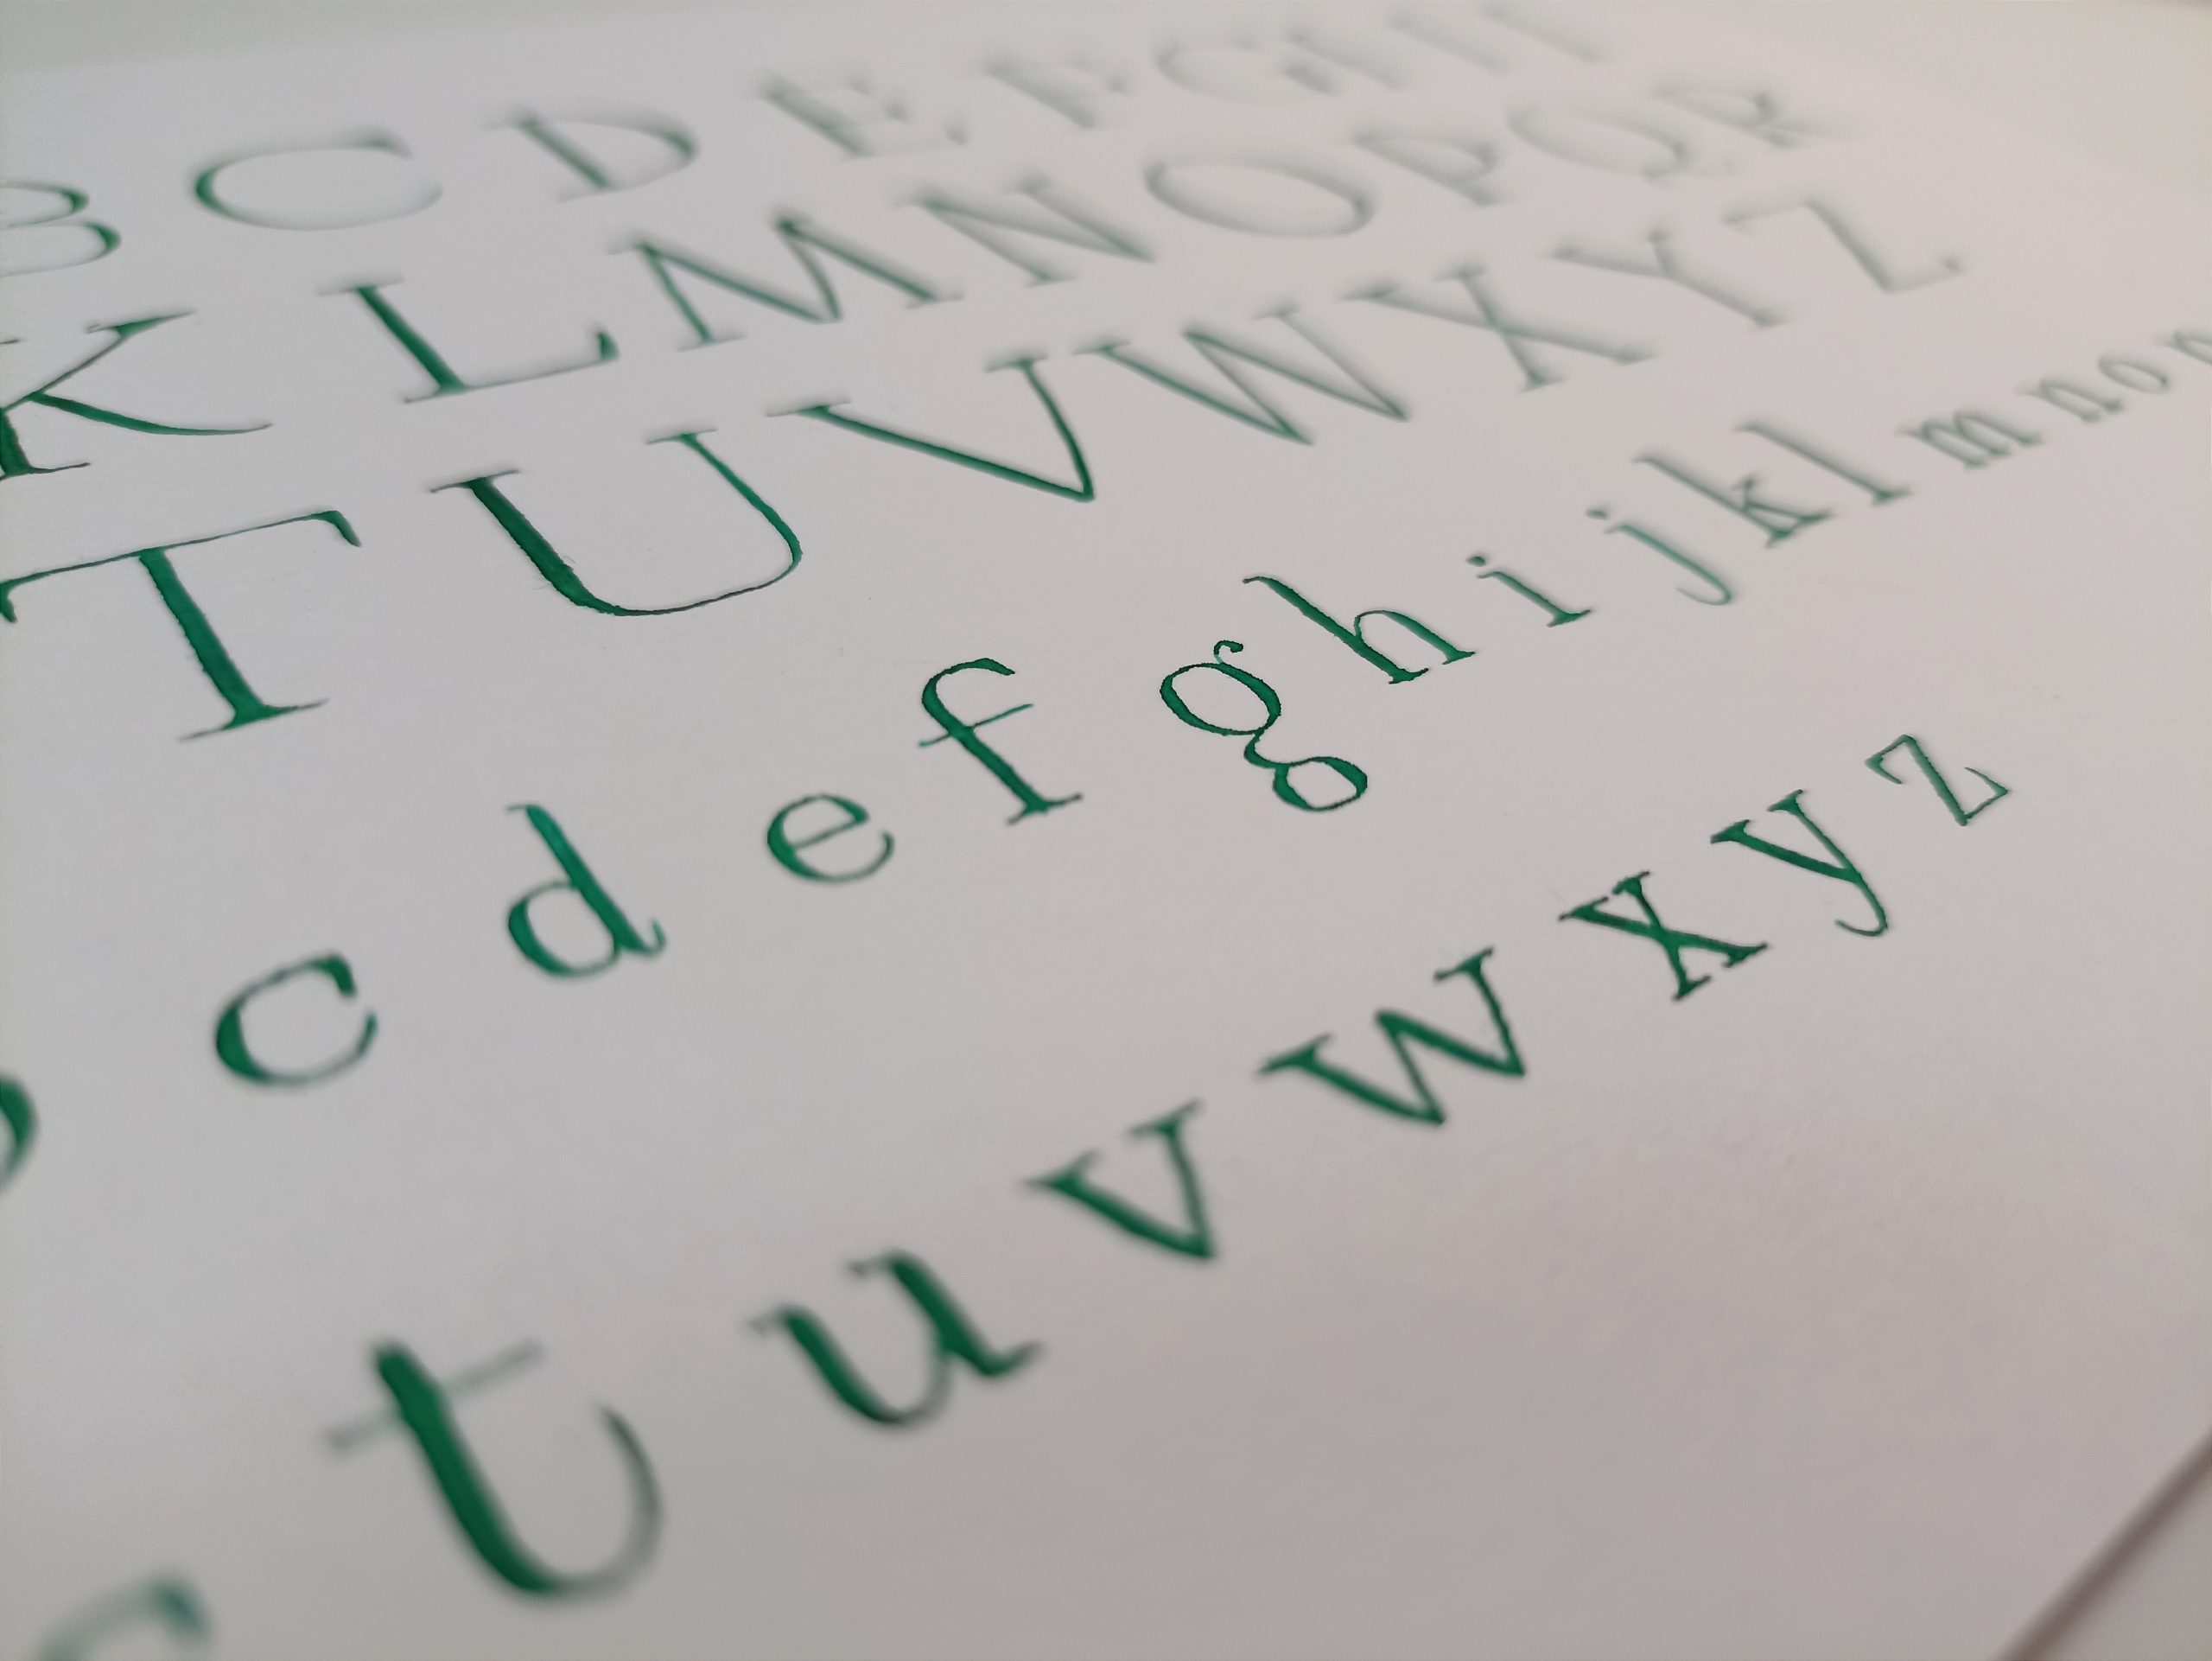 B C D E F G H I J
K L M N O P Q R
T U V W X Y Z
c d e f g h i j k l m n o p
s t u v w x y z